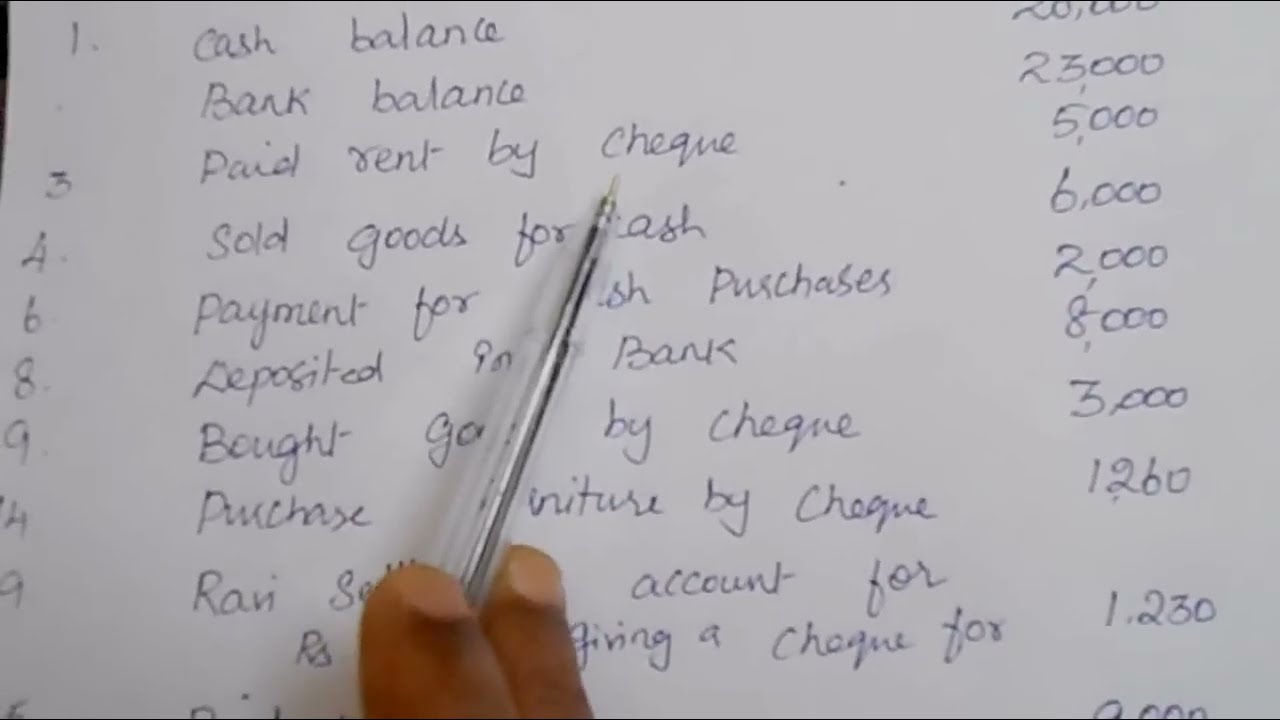 1. Cash balance 20,000
Bank balance 23,000
3 Paid rent by cheque 5,000
4. Sold goods for cash 6,000
6 Payment for Purchases 2,000
8. Deposited in Bank 8,000
9. Bought by cheque 3,000
Purchase by Cheque 1,260
Ravi account for
Rs giving a cheque for 1.230